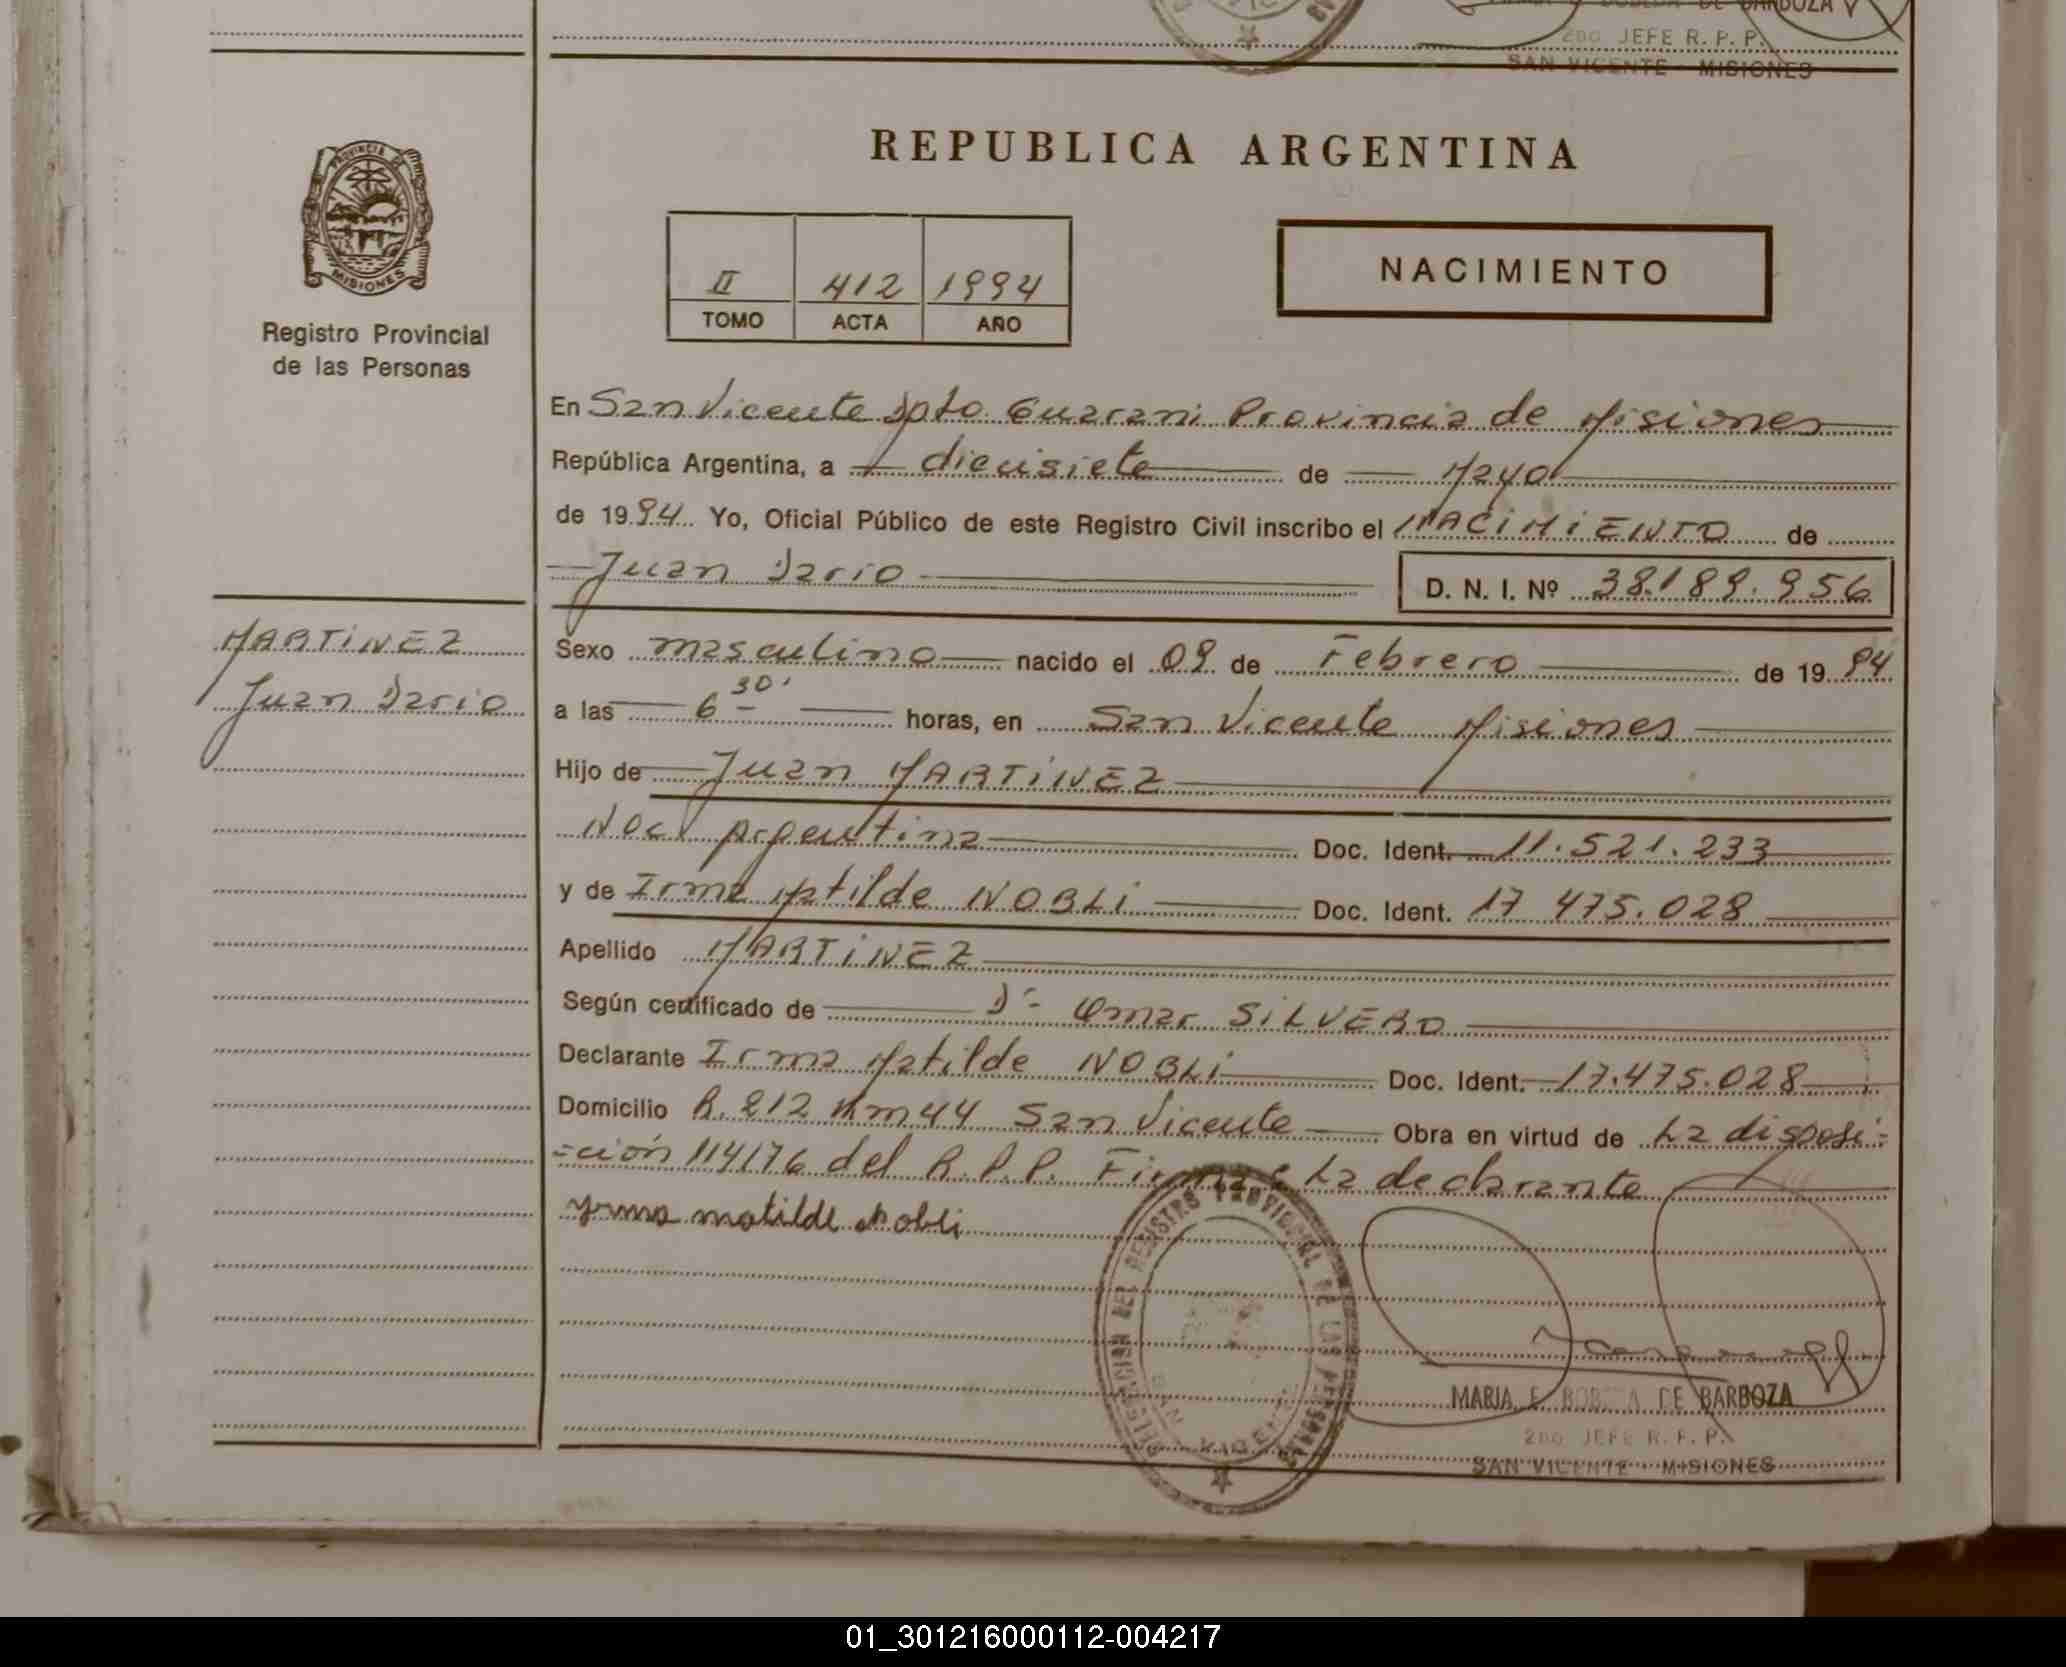 DE BARBOZA
2DO JEFE R. P. P.
SAN VICENTE - MISIONES
PROVINCIA DE
MISIONES
Registro Provincial
de las Personas
MARTINEZ
Juan Dario
REPUBLICA ARGENTINA
II 412 1994
TOMO ACTA AÑO
NACIMIENTO
En San Vicente Dpto. Guarani Provincia de Misiones
República Argentina, a diecisiete de Mayo
de 1994 Yo, Oficial Público de este Registro Civil inscribo el NACIMIENTO de
Juan Dario D. N. I. Nº 38.189.956
Sexo masculino nacido el 09 de Febrero de 1994
a las 6 30' horas, en San Vicente Misiones
Hijo de Juan MARTINEZ
Nac. Argentina Doc. Ident. 11.521.233
y de Irma Matilde NOBLI Doc. Ident. 17 475.028
Apellido MARTINEZ
Según certificado de Dr Omar SILVERO
Declarante Irma Matilde NOBLI Doc. Ident. 17.475.028
Domicilio R. 212 Km 44 San Vicente Obra en virtud de La disposi=
=ción 114/76 del R.P.P. Firma: La declarante
Yrma matilde Nobli
DELEGACION DEL REGISTRO PROVINCIAL DE LAS PERSONAS
SAN VICENTE
MARIA E. DE BARBOZA
2DO JEFE R. P. P.
SAN VICENTE - MISIONES
01_301216000112-004217